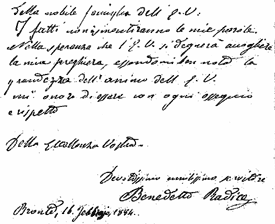 della nobile famiglia dell' E. V.
I fatti non ismentiranno le mie parole.
Nella speranza che l'E. V. si degnerà accogliere
la mia preghiera, essendomi ben nota la
grandezza dell'animo dell'E. V.
mi onoro di essere con ogni ossequio
e rispetto
Della Eccellenza Vostra
Devotissimo umilissimo servitore
Benedetto Radice
Bronte, 16 febbraio 1884.